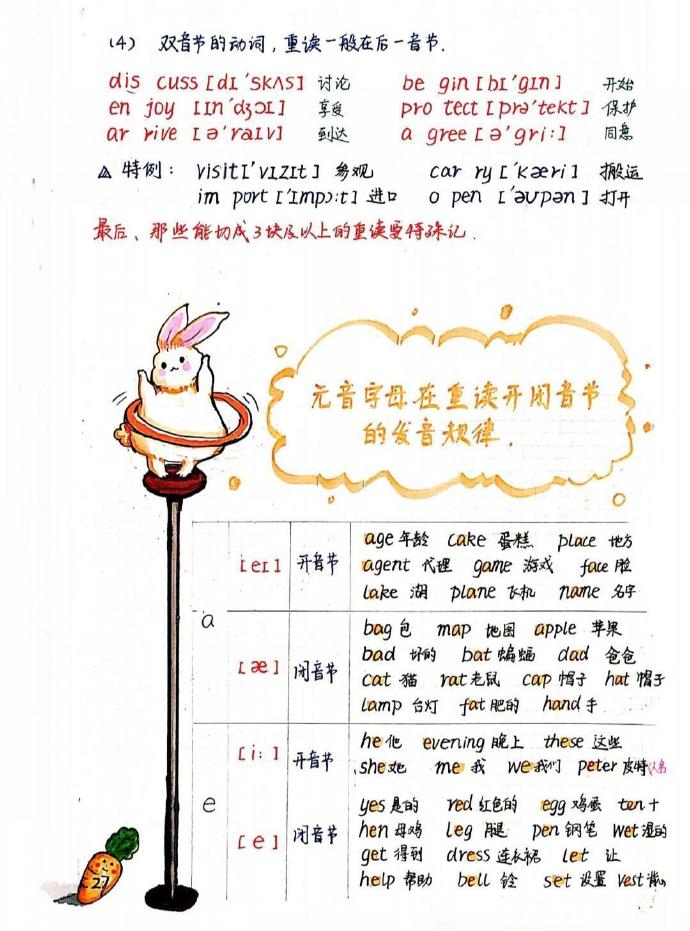 (4) 双音节的动词，重读一般在后一音节.
dis cuss [dɪ'skʌs] 讨论 be gin [bɪ'gɪn] 开始
en joy [ɪn'dʒɔɪ] 享受 pro tect [prə'tekt] 保护
ar rive [ə'raɪv] 到达 a gree [ə'gri:] 同意
△ 特例: visit['vɪzɪt] 参观 car ry ['kæri] 搬运
im port ['ɪmpɔ:t] 进口 o pen ['əʊpən] 打开
最后、那些能切成3块及以上的重读要特殊记.
元音字母在重读开闭音节
的发音规律.
a
[eɪ] 开音节
age 年龄 cake 蛋糕 place 地方
agent 代理 game 游戏 face 脸
lake 湖 plane 飞机 name 名字
[æ] 闭音节
bag 包 map 地图 apple 苹果
bad 坏的 bat 蝙蝠 dad 爸爸
cat 猫 rat 老鼠 cap 帽子 hat 帽子
lamp 台灯 fat 肥的 hand 手
e
[i:] 开音节
he 他 evening 晚上 these 这些
she 她 me 我 we 我们 peter 皮特 人名
[e] 闭音节
yes 是的 red 红色的 egg 鸡蛋 ten 十
hen 母鸡 leg 腿 pen 钢笔 wet 湿的
get 得到 dress 连衣裙 let 让
help 帮助 bell 铃 set 设置 vest
27